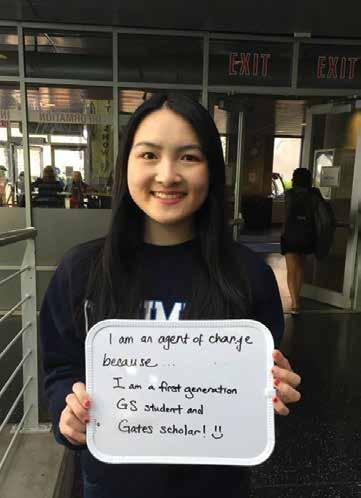 EXIT
EXIT
INFORMATION
I am an agent of change
because...
I am a first generation
GS student and
Gates scholar! :)